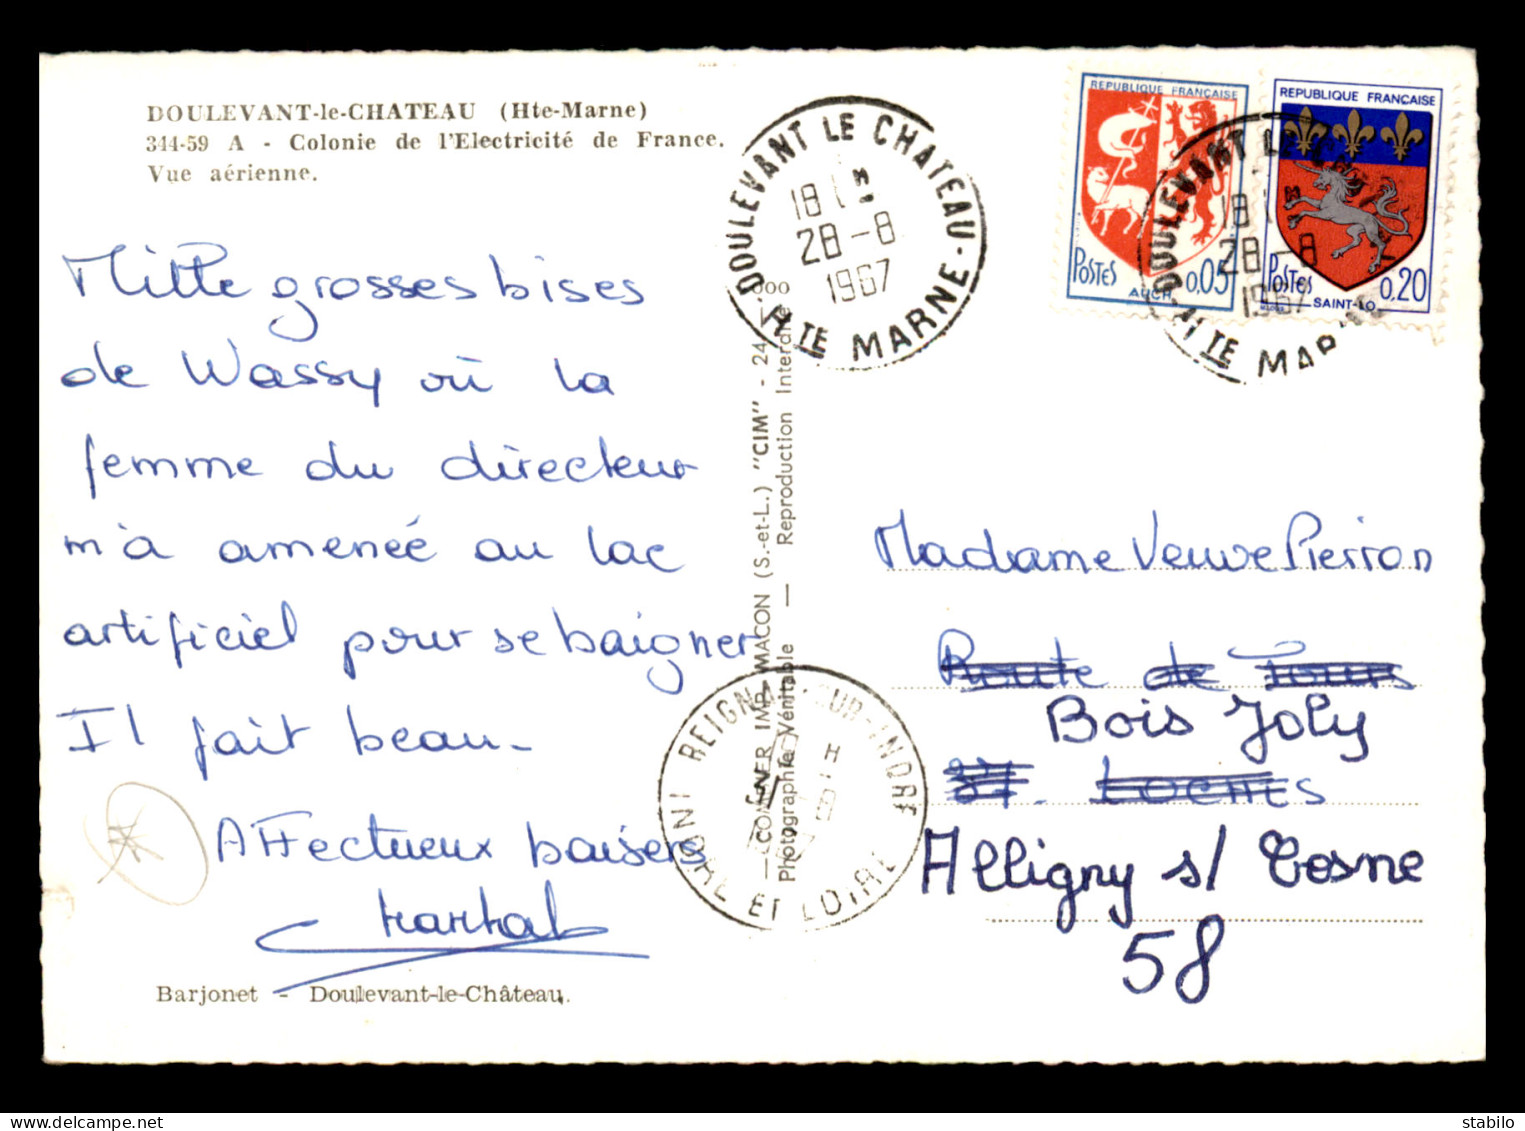 DOULEVANT-le-CHATEAU (Hte-Marne)
344-59 A - Colonie de l'Electricité de France.
Vue aérienne.
Mille grosses bises
de Wassy où la
femme du directeur
m'a amenée au lac
artificiel pour se baigner
Il fait beau_
Affectueux baisers
Barjonet - Doulevant-le-Château.
COMBIER IMP. MACON (S.-et-L.) "CIM" - 24
Photographie Véritable — Reproduction Interdite
DOULEVANT LE CHATEAU
18 H
28-8
1967
HTE MARNE
REPUBLIQUE FRANÇAISE
POSTES 0,05
AUCH
REPUBLIQUE FRANÇAISE
POSTES 0,20
SAINT-LO
DOULEVANT LE CHATEAU
18 H
28-8
1967
HTE MARNE
REIGNAC-SUR-INDRE
INDRE ET LOIRE
Madame Veuve Pierron
Route de Tours
Bois Joly
37. Loches
Alligny s/ Cosne
58
delcampe.net
studio-tko